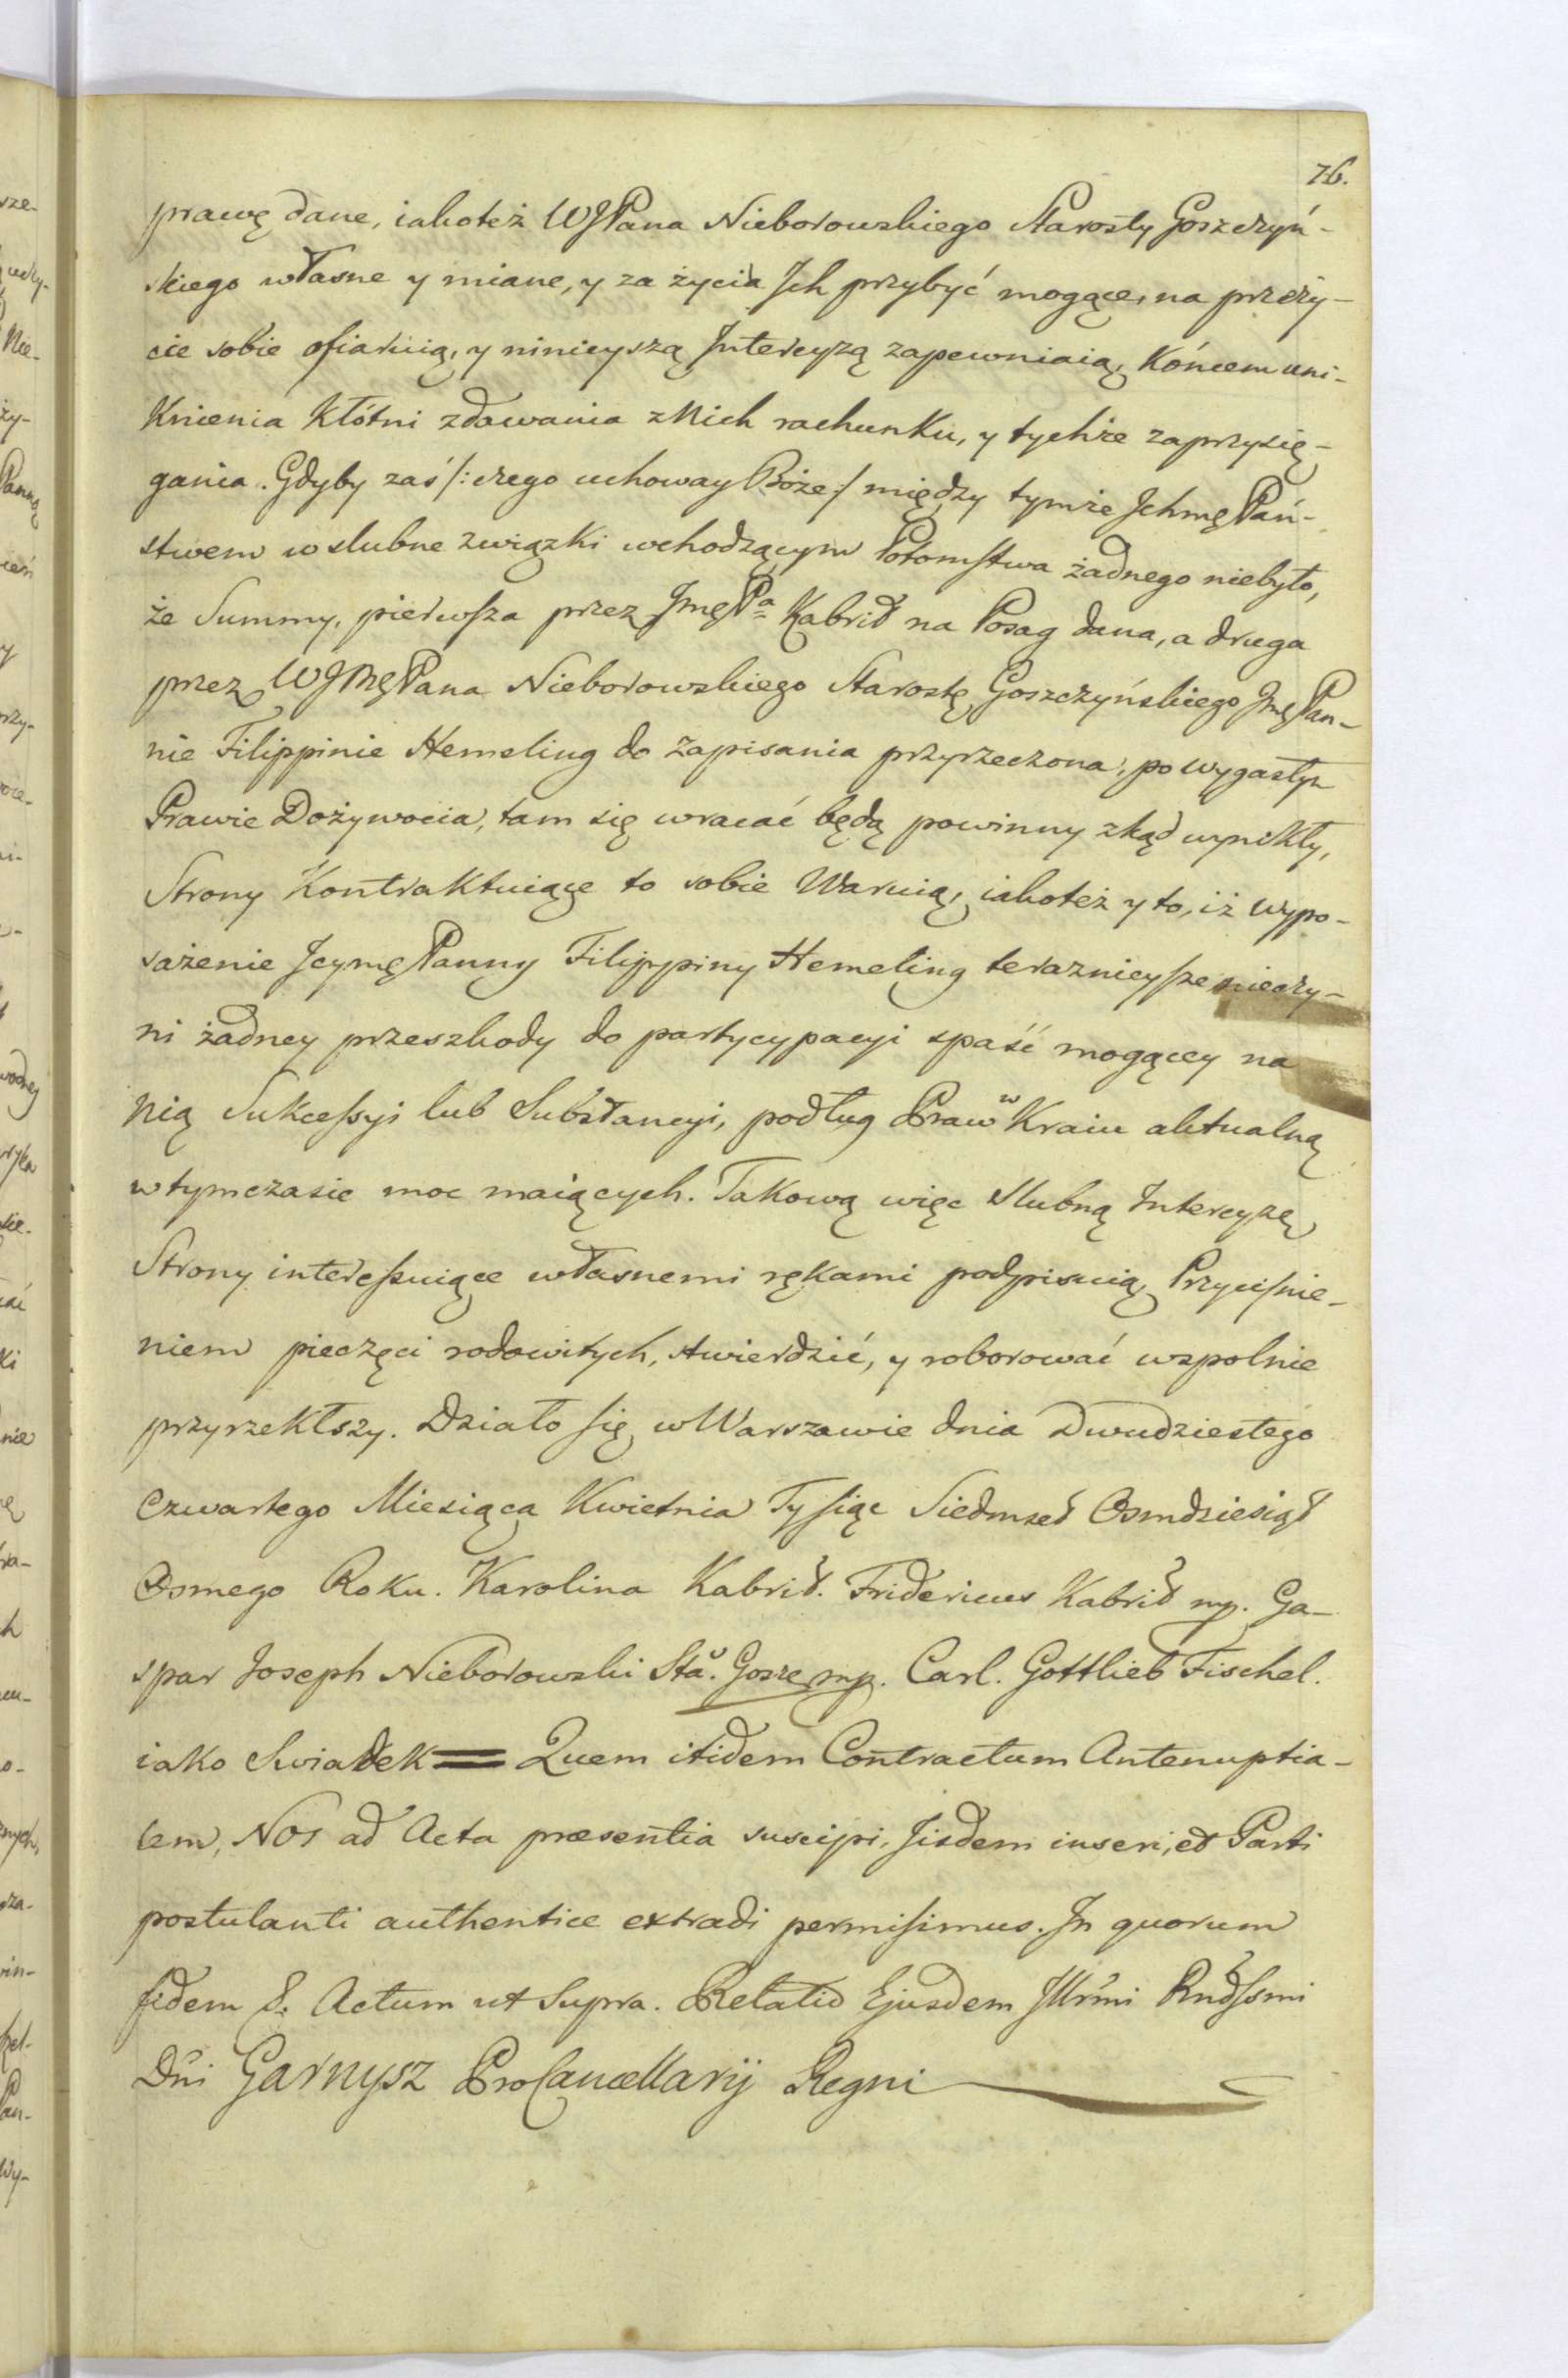 76.
prawę dane, iakoteż WJPana Nieborowskiego Starosty Goszczyń-
skiego własne y miane, y za życia Jch przybyć mogące, na przeży-
cie sobie ofiaruią, y ninieyszą Jntercyzą zapewniaią, Końcem uni-
Knienia Kłótni zdawania z Nich rachunku, y tychże zaprzysię-
gania. Gdyby zaś /: czego uchoway Boże :/ między tymże JchmęPań-
stwem w slubne związki wchodzącym Potomstwa żadnego niebyło,
że Summy, pierwsza przez JmęPa Kabrit na Posag dana, a druga
przez WJmęPana Nieborowskiego Starostę Goszczyńskiego JmęPan-
nie Filippinie Hemeling do zapisania przyrzeczona, po wygasłym
Prawie Dożywocia, tam się wracać będą powinny zkąd wynikły,
Strony Kontraktuiące to sobie Waruią, iakoteż y to, iż wypo-
sażenie JeymęPanny Filippiny Hemeling teraznieysze nieczy-
ni żadney przeszkody do partycypacyi spaść mogącey na
nią Sukcessyi lub Substancyi, podług Praw w Kraiu aktualną
w tymczasie moc maiących. Takową więc Slubną Jntercyzę
Strony interessuiące własnemi rękami podpisuią Przycisnie-
niem pieczęci rodowitych, stwierdzić, y roborować wspolnie
przyrzekłszy. Działo się w Warszawie dnia Dwudziestego
Czwartego Miesiąca Kwietnia Tysiąc Siedmset Osmdziesiąt
Osmego Roku. Karolina Kabrit. Fridericus Kabrit mp. Ga-
spar Joseph Nieborowski Sta. Goszc mp. Carl. Gottlieb Fischel.
iako Swiadek = Quem itidem Contractum Antenuptia-
lem, Nos ad Acta præsentia suscipi, Jisdem inseri, et Parti
postulanti authentice extradi permisimus. Jn quorum
fidem &. Actum ut Supra. Relatio Ejusdem Jllrmi Rndssmi
Dni Garnysz ProCancellarij Regni